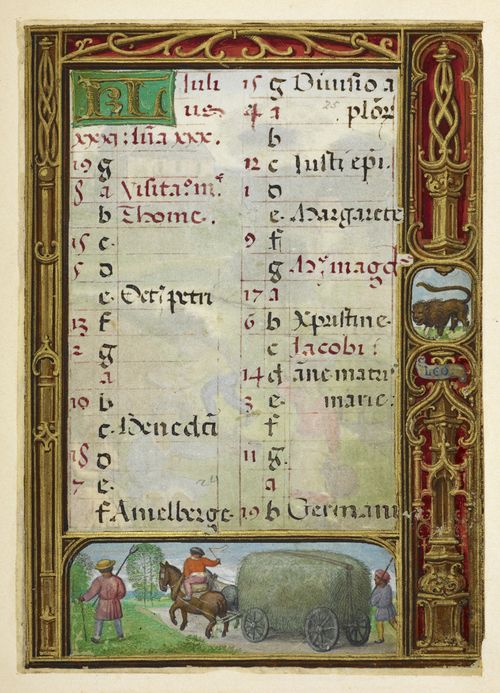 KL Juli
us
xxxi: lũa xxx.
19 g
8 a Visitaº. m
b Thome.
c
5 d
e Octª petri
13 f
2 g
a
10 b
c Benedcti
18 d
7 e
24
f Amelberge
15 g Diuisio a
4 a 25 plor
b
12 c Justi epi.
1 d
e Margarete
9 f
g magd
17 a
6 b Xpristine
c Jacobi
14 d ane matris
3 e marie:
f
11 g
a
19 b Germani
LEO